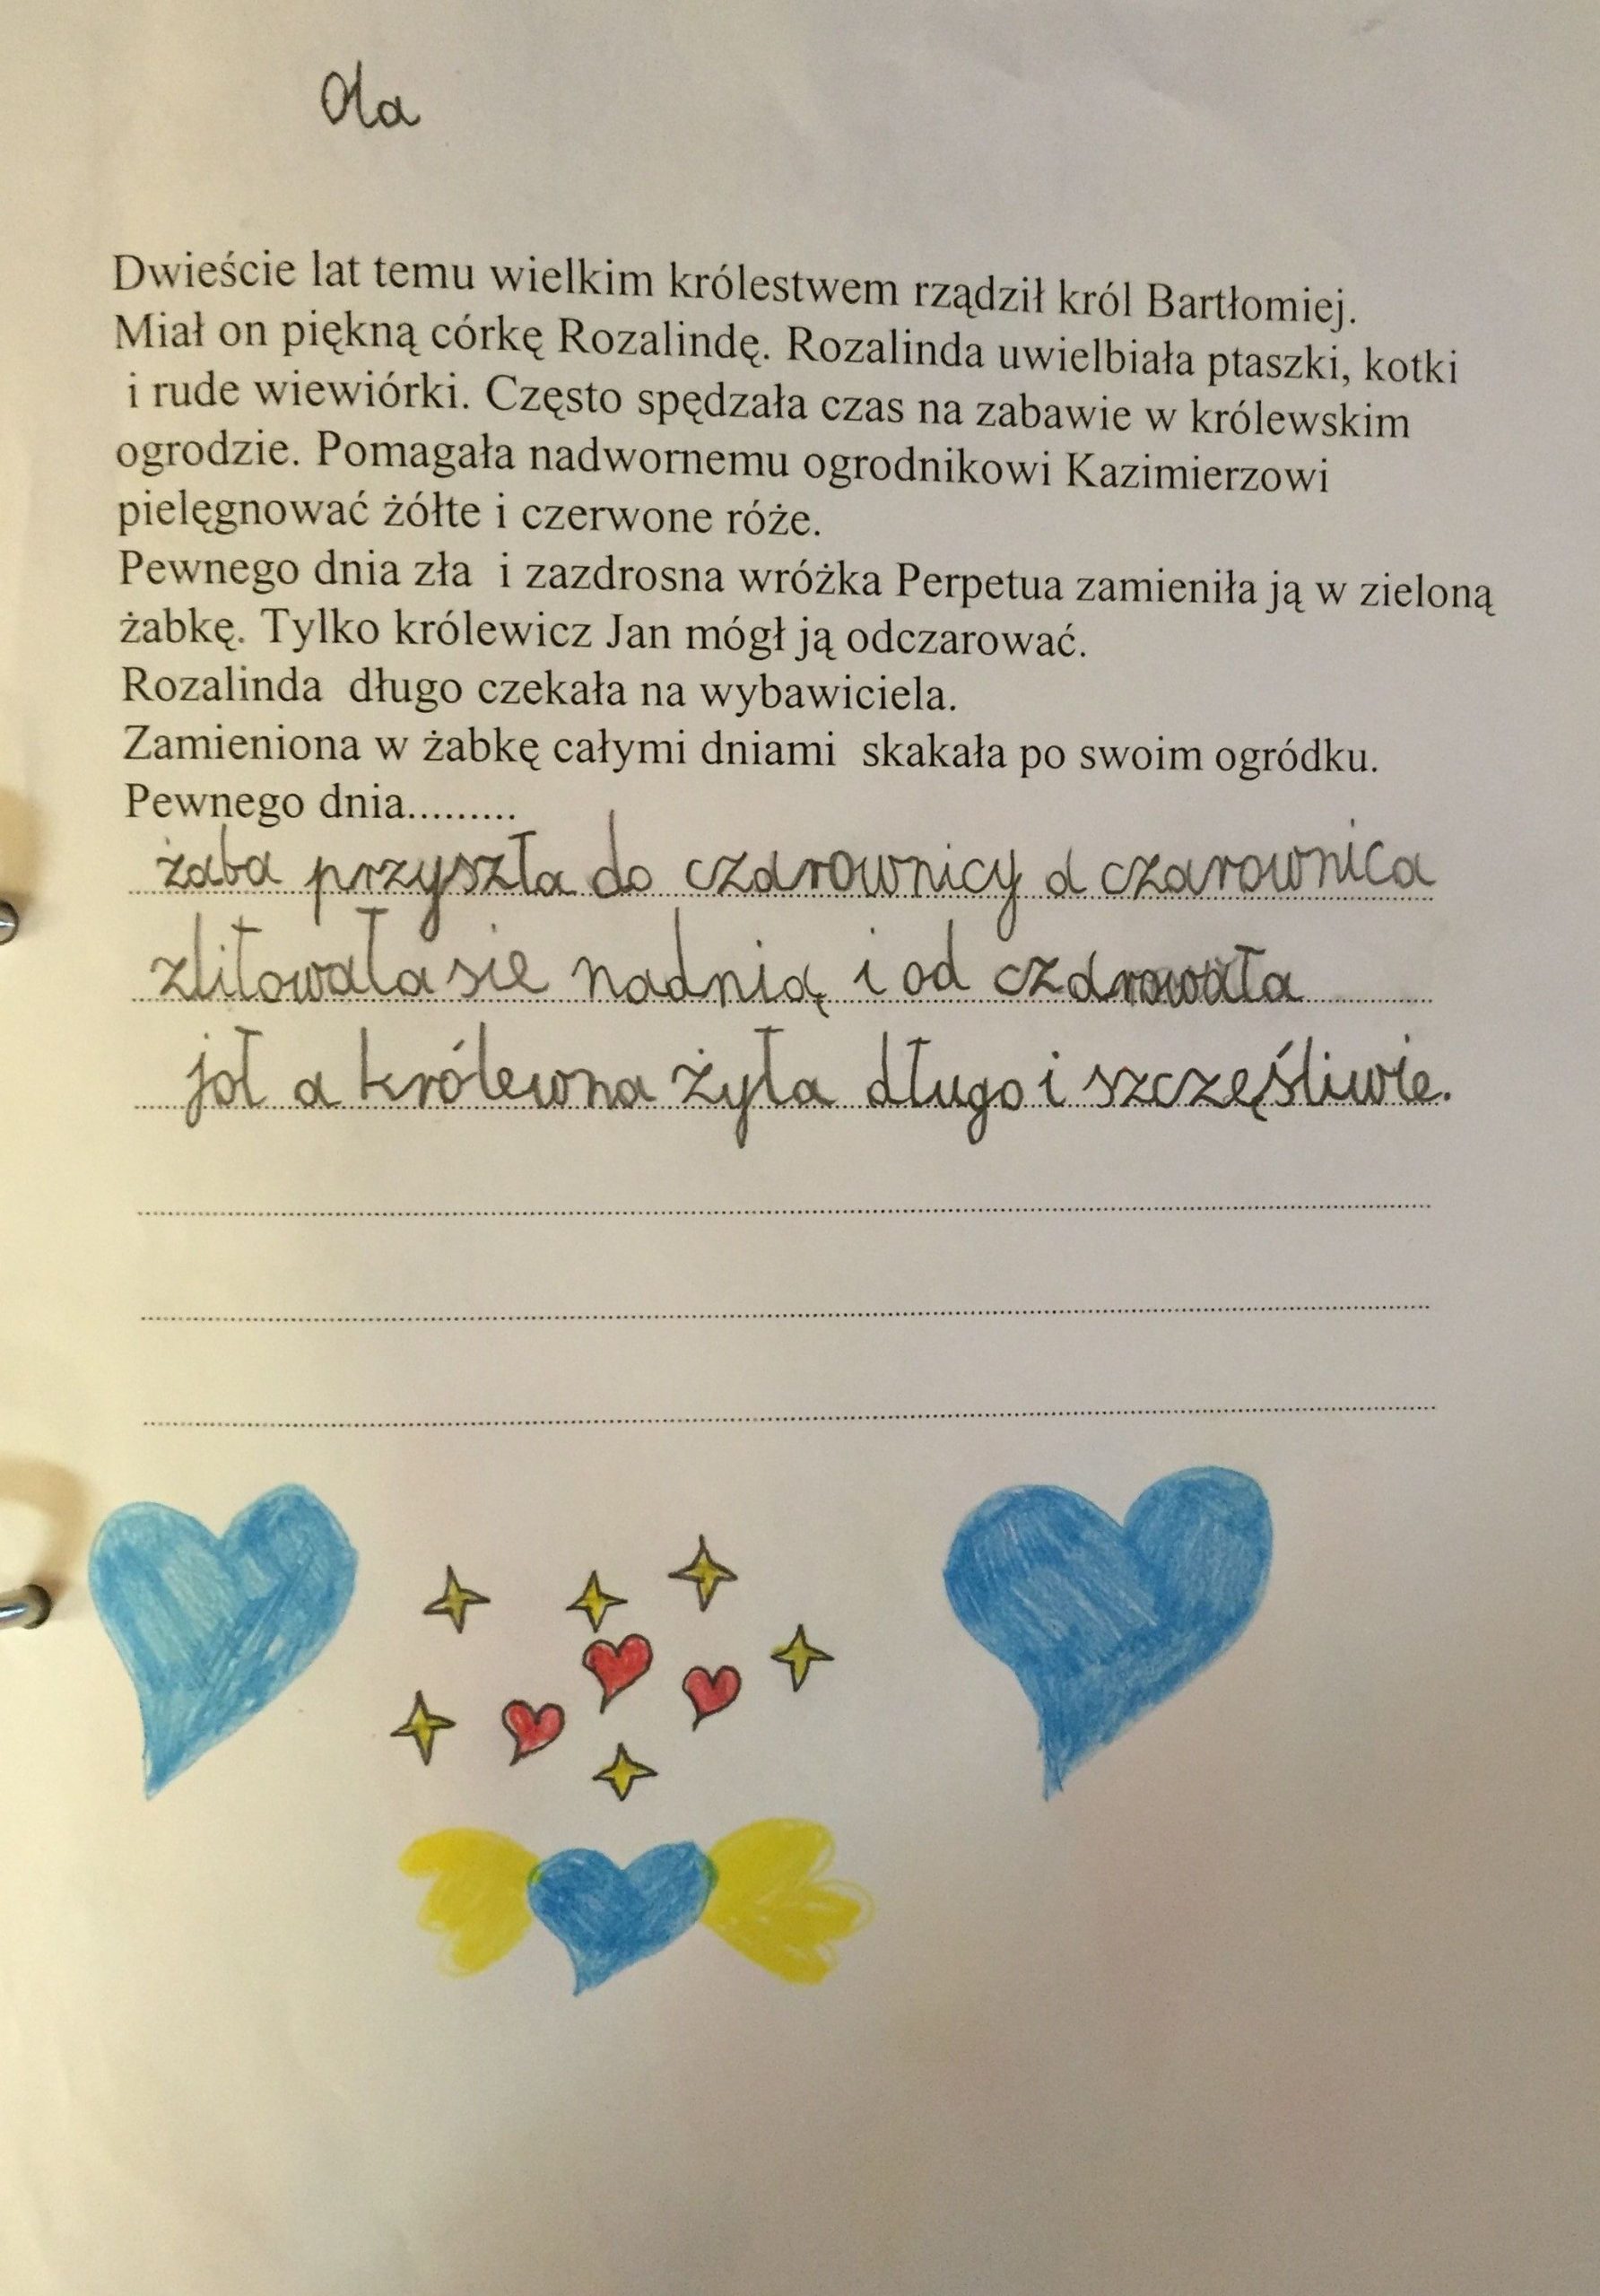 Ola
Dwieście lat temu wielkim królestwem rządził król Bartłomiej.
Miał on piękną córkę Rozalindę. Rozalinda uwielbiała ptaszki, kotki
i rude wiewiórki. Często spędzała czas na zabawie w królewskim
ogrodzie. Pomagała nadwornemu ogrodnikowi Kazimierzowi
pielęgnować żółte i czerwone róże.
Pewnego dnia zła i zazdrosna wróżka Perpetua zamieniła ją w zieloną
żabkę. Tylko królewicz Jan mógł ją odczarować.
Rozalinda długo czekała na wybawiciela.
Zamieniona w żabkę całymi dniami skakała po swoim ogródku.
Pewnego dnia.........
żaba przyszła do czarownicy a czarownica
zlitowała sie nadnią i od czarowała
joł a królewna żyła długo i szczęśliwie.